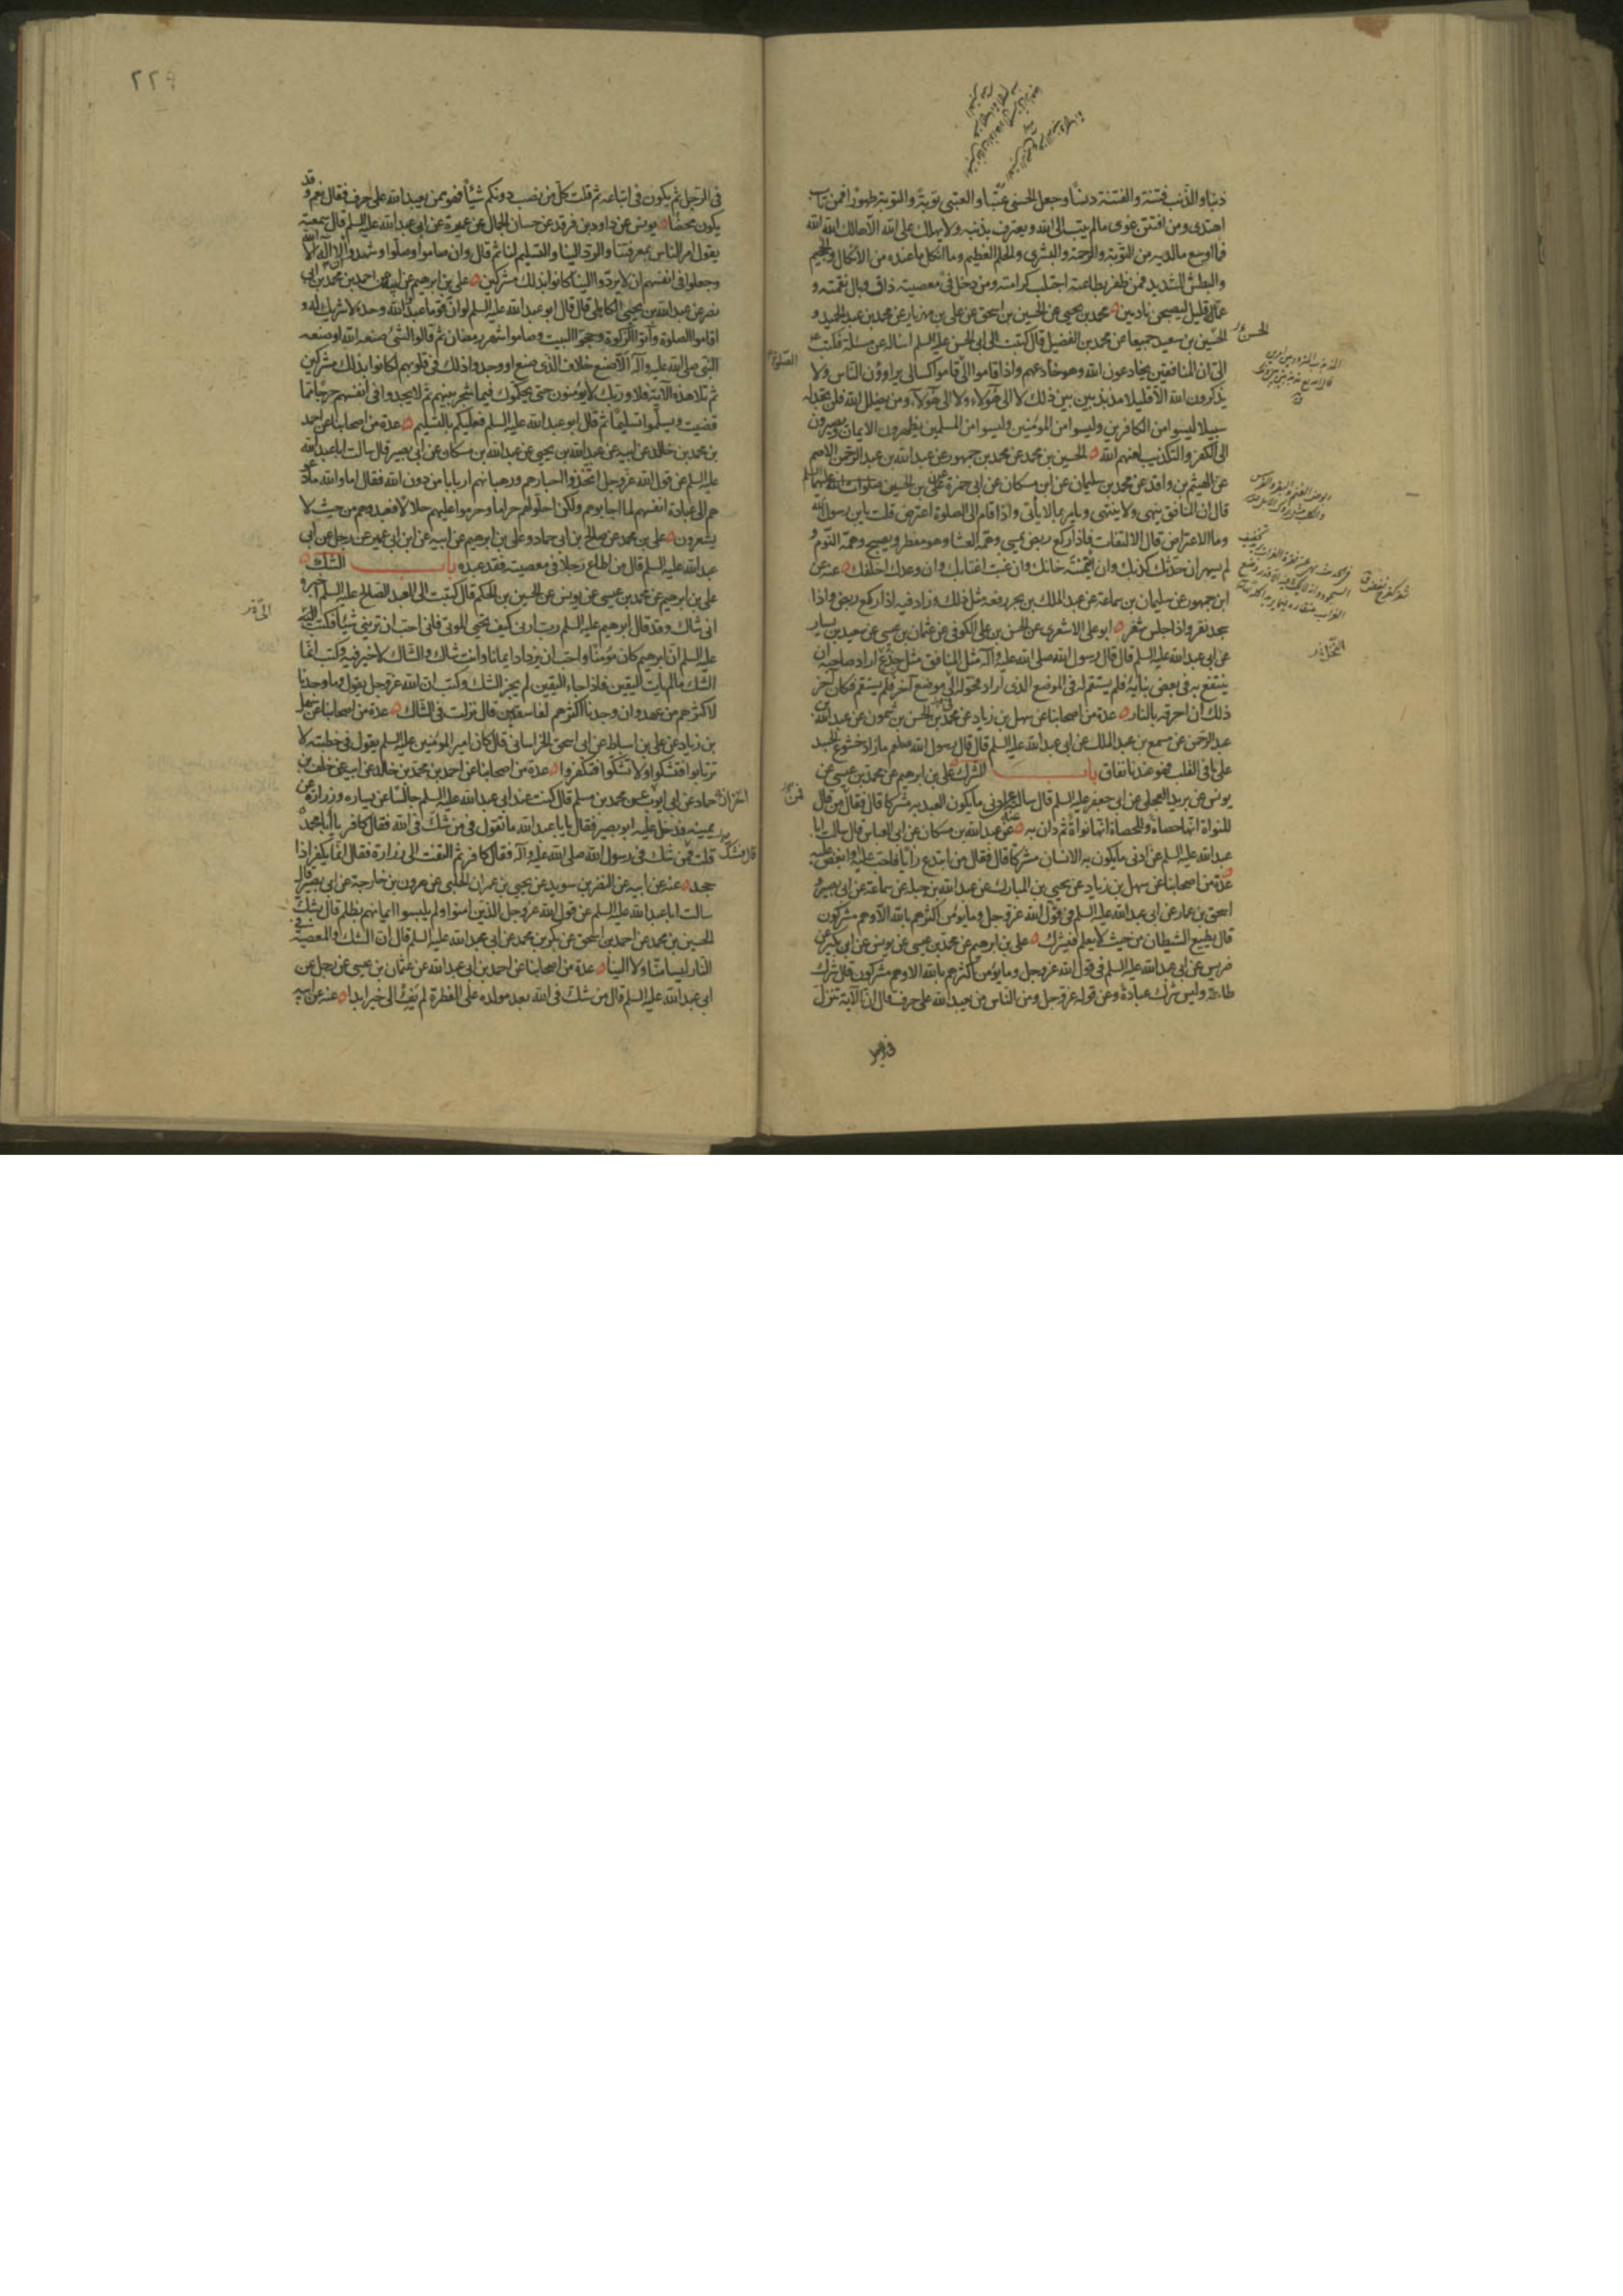 ذنبا والذنب فتنة والفتنة دنسا وجعل الحسنى عتبا والعتبى توبة والتوبة طهورا فمن تاب
اهتدى ومن افتتن غوى مالم يتب الى الله ويعترف بذنبه ولا يهلك على الله الا هالك الله الله
فما اوسع مالديه من التوبة والرحمة والبشرى والحلم العظيم وما انكل ما عنده من الانكال والجحيم
والبطش الشديد فمن ظفر بطاعته اجتلب كرامته ومن دخل في معصيته ذاق وبال نقمته و
عما قليل ليصبحن نادمين محمد بن يحيى عن الحسين بن اسحق عن علي بن مهزيار عن محمد بن عبد الحميد و
الحسين بن سعيد جميعا عن محمد بن الفضيل قال كتبت الى ابي الحسن عليه السلم اساله عن مسئلة فكتب
الي ان المنافقين يخادعون الله وهو خادعهم واذا قاموا الى قاموا كسالى يراؤون الناس ولا
الصلوة
يذكرون الله الا قليلا مذبذبين بين ذلك لا الى هؤلاء ولا الى هؤلاء ومن يضلل الله فلن تجد له
سبيلا ليسوا من الكافرين وليسوا من المؤمنين وليسوا من المسلمين يظهرون الايمان ويصيرون
الى الكفر والتكذيب لعنهم الله الحسين بن محمد عن محمد بن جمهور عن عبد الله بن عبد الرحمن الاصم
عن الهيثم بن واقد عن محمد بن سليمان عن ابن مسكان عن ابي حمزة عن علي بن الحسين صلوات الله عليهما
قال ان المنافق ينهى ولا ينتهي ويامر بما لا ياتي واذا قام الى الصلوة اعترض قلت يابن رسول الله
وما الاعتراض قال الالتفات فاذا ركع ربض يمسي وهمه العشا وهو مفطر ويصبح وهمه النوم و
لم يسهر ان حدثك كذبك وان ائتمنته خانك وان غبت اغتابك وان وعدك اخلفك عنه عن
ابن جمهور عن سليمان بن سماعة عن عبد الملك بن بحر رفعه مثل ذلك وزاد فيه اذا ركع ربض واذا
سجد نقر واذا جلس شغر ابو علي الاشعري عن الحسن بن علي الكوفي عن عثمان بن عيسى عن سعيد بن يسار
عن ابي عبد الله عليه السلم قال قال رسول الله صلى الله عليه وآله مثل المنافق مثل جذع اراد صاحبه ان
ينتفع به في بعض بنائه فلم يستقم له في الموضع الذي اراد فحوله الى موضع آخر فلم يستقم فكان آخر
ذلك ان احرقه بالنار عدة من اصحابنا عن سهل بن زياد عن محمد بن الحسن بن شمون عن عبد الله بن
عبد الرحمن عن مسمع بن عبد الملك عن ابي عبد الله عليه السلم قال قال رسول الله صلعم ما زاد خشوع الجسد
على ما في القلب فهو عندنا نفاق باب الشرك علي بن ابرهيم عن محمد بن عيسى عن
يونس عن بريد العجلي عن ابي جعفر عليه السلم قال سالته عن ادنى ما يكون العبد به مشركا قال فقال من قال
للنواة انها حصاة وللحصاة انها نواة ثم دان به عنه عن عبد الله بن مسكان عن ابي العباس قال سالت ابا
عبد الله عليه السلم عن ادنى ما يكون به الانسان مشركا قال فقال من ابتدع رايا فاحب عليه وابغض عليه
عدة من اصحابنا عن سهل بن زياد عن يحيى بن المبارك عن عبد الله بن جبلة عن سماعة عن ابي بصير و
اسحق بن عمار عن ابي عبد الله عليه السلم في قول الله عز وجل وما يؤمن اكثرهم بالله الا وهم مشركون
قال يطيع الشيطان من حيث لا يعلم فيشرك علي بن ابرهيم عن محمد بن عيسى عن يونس عن ابن بكير عن
ضريس عن ابي عبد الله عليه السلم في قول الله عز وجل وما يؤمن اكثرهم بالله الا وهم مشركون قال شرك
طاعة وليس شرك عبادة وعن قوله عز وجل ومن الناس من يعبد الله على حرف قال ان الآية تنزل
في الرجل ثم يكون في اتباعه ثم قلت كل من نصب دونكم شيئا فهو ممن يعبد الله على حرف فقال نعم وقد
يكون محضا يونس عن داود بن فرقد عن حسان الجمال عن عميرة عن ابي عبد الله عليه السلم قال سمعته
يقول امر الناس بمعرفتنا والرد الينا والتسليم لنا ثم قال وان صاموا وصلوا وشهدوا ان لا اله الا الله
وجعلوا في انفسهم ان لا يردوا الينا كانوا بذلك مشركين علي بن ابرهيم عن ابيه عن احمد بن محمد بن ابي
نصر عن عبد الله بن يحيى الكاهلي قال قال ابو عبد الله عليه السلم لو ان قوما عبدوا الله وحده لا شريك له و
اقاموا الصلوة وآتوا الزكوة وحجوا البيت وصاموا شهر رمضان ثم قالوا لشئ صنعه الله او صنعه
النبي صلى الله عليه وآله الا صنع خلاف الذي صنع او وجدوا ذلك في قلوبهم لكانوا بذلك مشركين
ثم تلا هذه الآية فلا وربك لا يؤمنون حتى يحكموك فيما شجر بينهم ثم لا يجدوا في انفسهم حرجا مما
قضيت ويسلموا تسليما ثم قال ابو عبد الله عليه السلم فعليكم بالتسليم عدة من اصحابنا عن احمد
بن محمد بن خالد عن ابيه عن عبد الله بن يحيى عن عبد الله بن مسكان عن ابي بصير قال سالت ابا عبد الله
عليه السلم عن قول الله عز وجل اتخذوا احبارهم ورهبانهم اربابا من دون الله فقال اما والله ما دعو
هم الى عبادة انفسهم لما اجابوهم ولكن احلوا لهم حراما وحرموا عليهم حلالا فعبدوهم من حيث لا
يشعرون علي بن محمد عن صالح بن ابي حماد وعلي بن ابرهيم عن ابيه عن ابن ابي عمير عن رجل عن ابي
عبد الله عليه السلم قال من اطاع رجلا في معصية فقد عبده باب الشك
علي بن ابرهيم عن محمد بن عيسى عن يونس عن الحسين بن الحكم قال كتبت الى العبد الصالح عليه السلم اخبره
اني شاك وقد قال ابرهيم عليه السلم رب ارني كيف تحيي الموتى فاني احب ان تريني شيئا فكتب اليه
عليه السلم ان ابرهيم كان مؤمنا واحب ان يزداد ايمانا وانت شاك والشاك لا خير فيه وكتب انما
الشك ما لم يات اليقين فاذا جاء اليقين لم يجز الشك وكتب ان الله عز وجل يقول وما وجدنا
لاكثرهم من عهد وان وجدنا اكثرهم لفاسقين قال نزلت في الشاك عدة من اصحابنا عن سهل
بن زياد عن علي بن اسباط عن ابي اسحق الخراساني قال كان امير المؤمنين عليه السلم يقول في خطبته لا
ترتابوا فتشكوا ولا تشكوا فتكفروا عدة من اصحابنا عن احمد بن محمد بن خالد عن ابيه عن خلف بن
حماد عن ابي ايوب عن محمد بن مسلم قال كنت عند ابي عبد الله عليه السلم جالسا عن يساره وزرارة عن
يمينه فدخل عليه ابو بصير فقال يابا عبد الله ما تقول في من شك في الله فقال كافر يا ابا محمد
قال فشك
قلت فمن شك في رسول الله صلى الله عليه وآله فقال كافر ثم التفت الى زرارة فقال انما يكفر اذا
جحد عنه عن ابيه عن النضر بن سويد عن يحيى بن عمران الحلبي عن هرون بن خارجة عن ابي بصير قال
سالت ابا عبد الله عليه السلم عن قول الله عز وجل الذين امنوا ولم يلبسوا ايمانهم بظلم قال بشك
الحسين بن محمد عن احمد بن اسحق عن بكر بن محمد عن ابي عبد الله عليه السلم قال ان الشك والمعصية في
النار ليسا منا ولا الينا عدة من اصحابنا عن احمد بن ابي عبد الله عن عثمان بن عيسى عن رجل عن
ابي عبد الله عليه السلم قال من شك في الله بعد مولده على الفطرة لم يفئ الى خير ابدا عنه عن ابيه